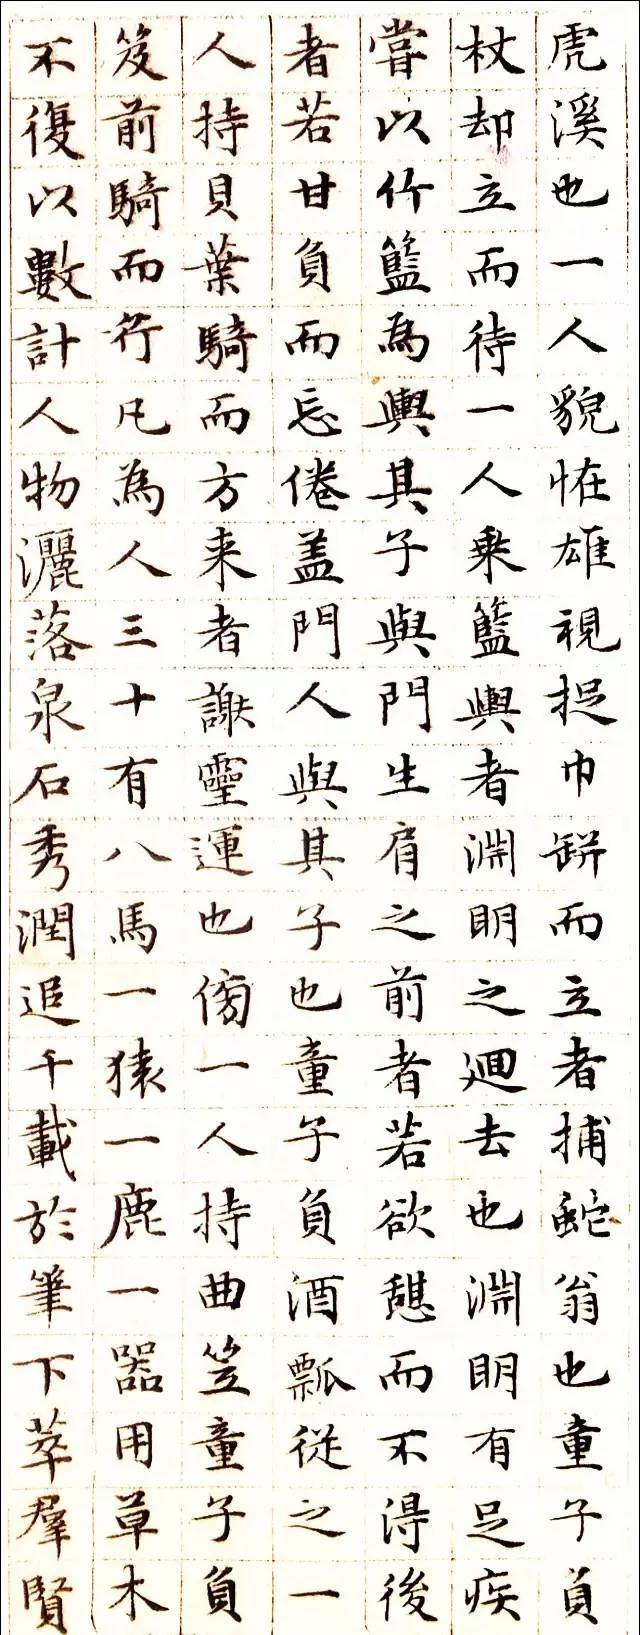 虎溪也一人貌恠雄視捉巾缾而立者捕虵翁也童子負
杖却立而待一人乘籃輿者淵明之迴去也淵明有足疾
嘗以竹籃為輿其子與門生肩之前者若欲憇而不得後
者若甘負而忘倦盖門人與其子也童子負酒瓢從之一
人持貝葉騎而方来者謝靈運也傍一人持曲笠童子負
笈前騎而行凡為人三十有八馬一猿一鹿一器用草木
不復以數計人物灑落泉石秀潤追千載於筆下萃羣賢